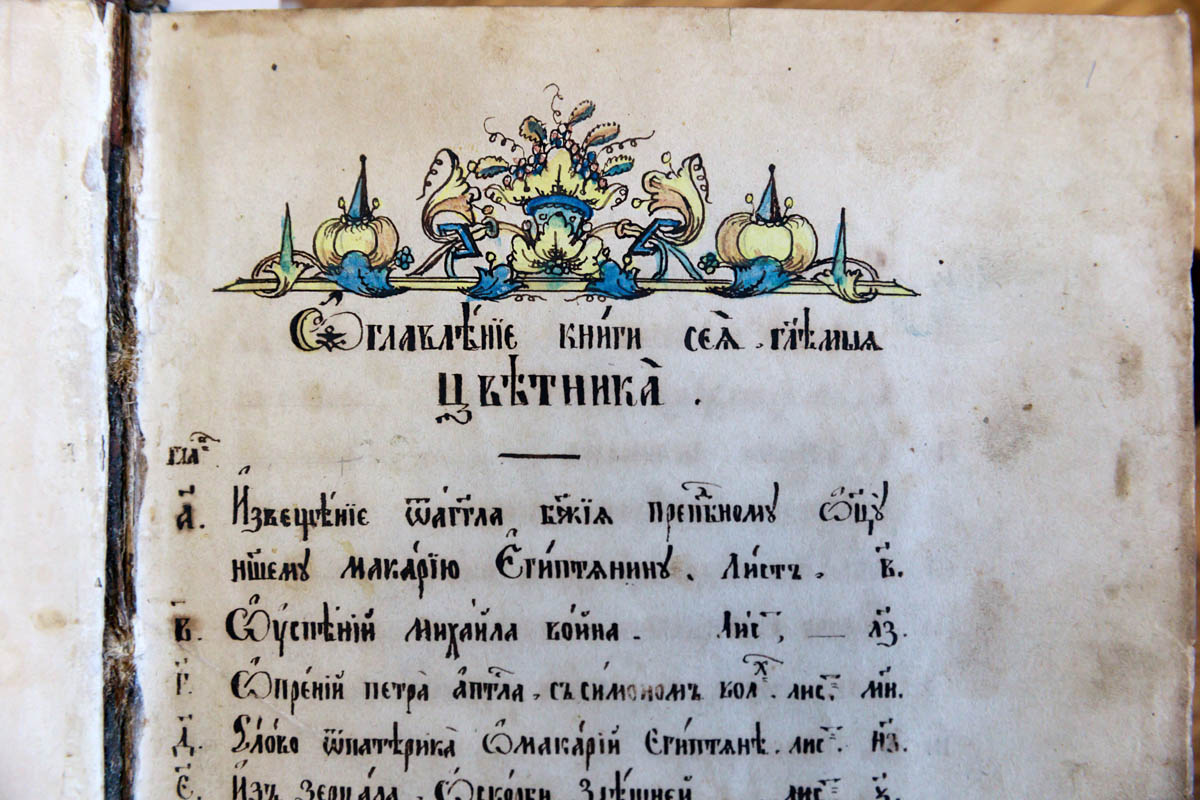 Ѡглавле́нїе кни́ги сеѧ̀ . гл҃е́мыѧ
Цвѣтника̀ .
гла҃
а҃. И҆звеще́нїе ѿа҆гг҃ла бж҃їѧ преп҃бному ѻ҆ц҃у̀
нш҃ему мака́рїю Е҆ги́птѧнину. Ли́стъ . в҃.
в҃. Ѡ҆успе́нїй миха́йла во́йна . Лис҃, — лз҃.
г҃. Ѡ҆пре́нїй петра̀ а҆пт҃ла . съсимономъ вол҃х. лис҃. мн҃.
д҃. Сло́во ѿпате́рика̀ ѡ҆мака́рїй Е҆ги́птѧне . лис҃. нз҃.
е҃. И҆зъ зерца́ла . Ѡ҆ско́рби зде́шней лис҃.